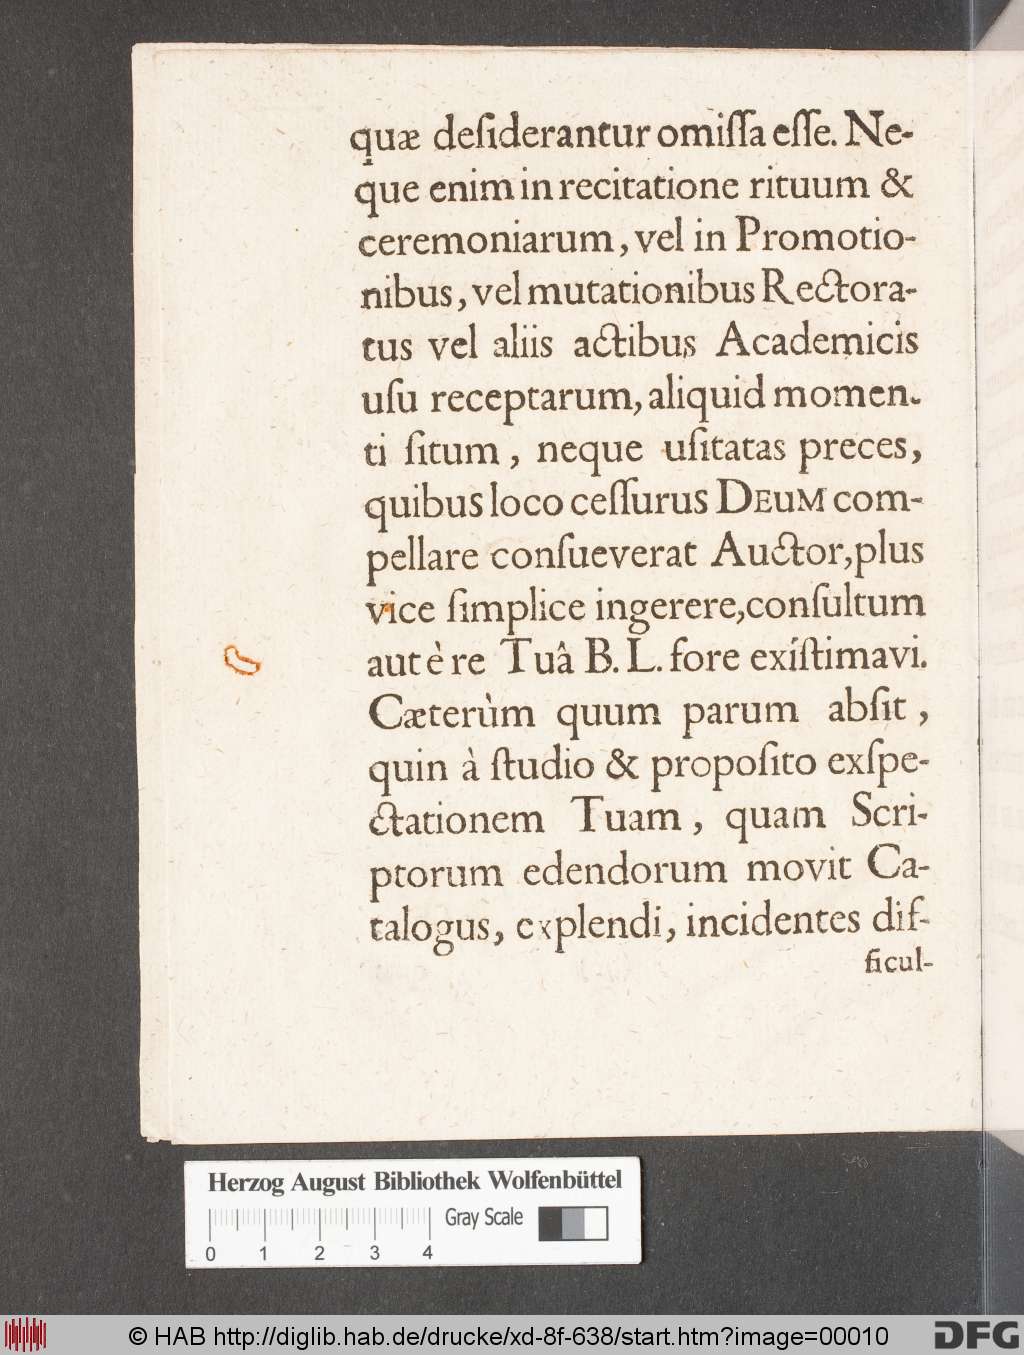 quæ deſiderantur omiſſa eſſe. Ne-
que enim in recitatione rituum &
ceremoniarum, vel in Promotio-
nibus, vel mutationibus Rectora-
tus vel aliis actibus Academicis
uſu receptarum, aliquid momen-
ti ſitum, neque uſitatas preces,
quibus loco ceſſurus DEUM com-
pellare conſueverat Auctor, plus
vice ſimplice ingerere, conſultum
aut è re Tuâ B. L. fore exiſtimavi.
Cæterùm quum parum abſit,
quin à ſtudio & propoſito exſpe-
ctationem Tuam, quam Scri-
ptorum edendorum movit Ca-
talogus, explendi, incidentes dif-
ficul-
Herzog August Bibliothek Wolfenbüttel
Gray Scale
0 1 2 3 4
© HAB http://diglib.hab.de/drucke/xd-8f-638/start.htm?image=00010
DFG